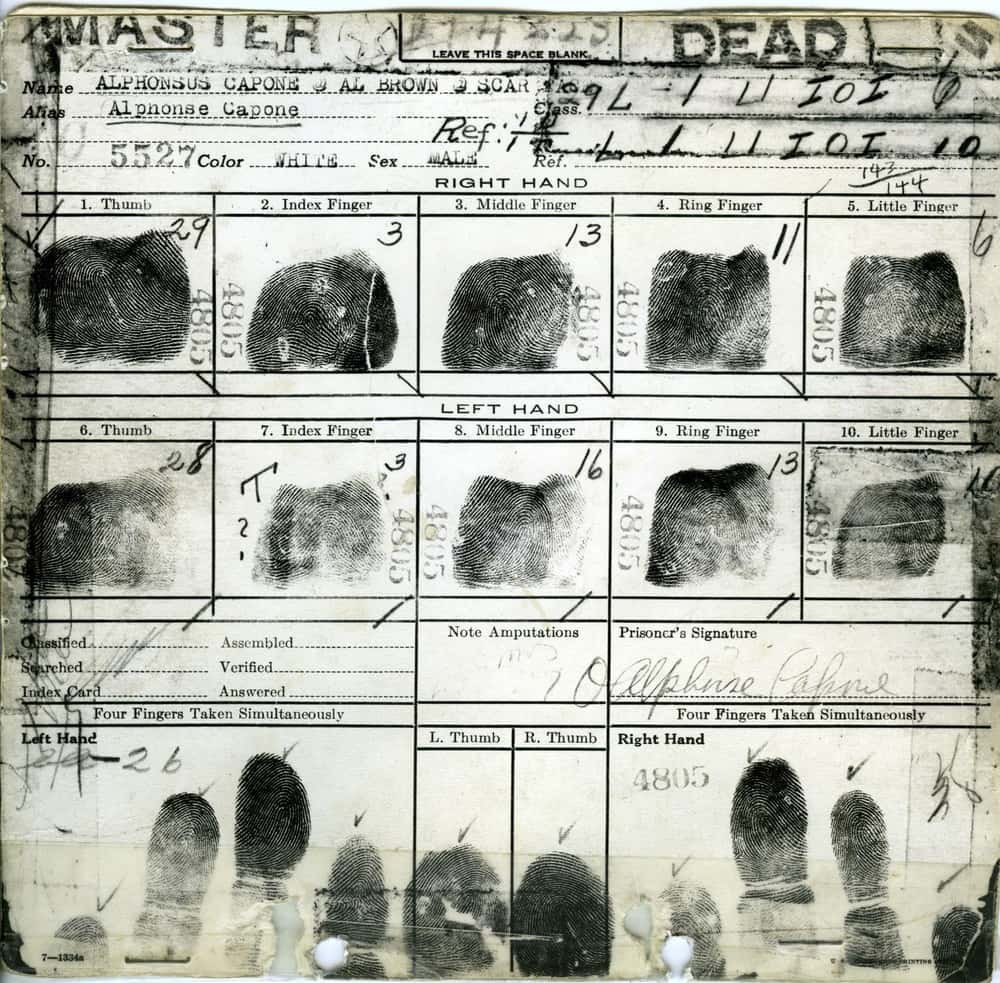 MASTER
DEAD
LEAVE THIS SPACE BLANK
Name ALPHONSUS CAPONE @ AL BROWN @ SCAR
Class. 9 L 1 U IOI 6
Alias Alphonse Capone
Ref: 1
1 U IOI 10
No. 5527 Color WHITE Sex MALE Ref.
143
144
RIGHT HAND
1. Thumb 2. Index Finger 3. Middle Finger 4. Ring Finger 5. Little Finger
29 3 13 11 6
4805 4805 4805 4805 4805
LEFT HAND
6. Thumb 7. Index Finger 8. Middle Finger 9. Ring Finger 10. Little Finger
28 T 3 16 13
?
4805 4805 4805 4805 4805
Classified Assembled Note Amputations Prisoner's Signature
Searched Verified
Index Card Answered
Alphonse Capone
Four Fingers Taken Simultaneously Four Fingers Taken Simultaneously
Left Hand L. Thumb R. Thumb Right Hand
26
4805
7—1334a